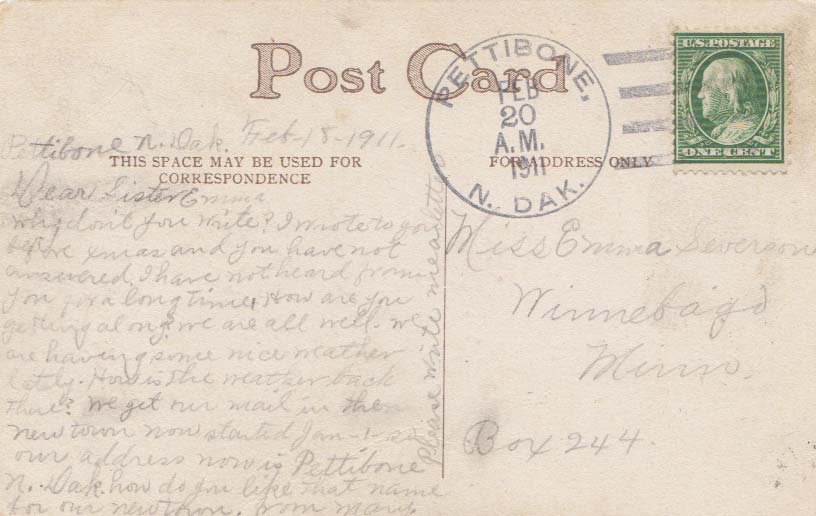 Post Card
PETTIBONE,
FEB
20
A.M.
1911
N. DAK.
U.S. POSTAGE
ONE CENT
Pettibone N. Dak. Feb-18-1911.
THIS SPACE MAY BE USED FOR
CORRESPONDENCE
FOR ADDRESS ONLY
Dear Sister Emma
Why don't you write? I wrote to you
before xmas and you have not
answered. I have not heard from
you for a long time. How are you
getting along. we are all well. we
are having some nice weather
lately. How is the weather back
there? We get our mail in the
new town now started Jan-1- so
our address now is Pettibone
N. Dak. how do you like that name
for our new town. from Mary.
Please write me a letter
Miss Emma Severson
Winnebago
Minn.
Box 244.